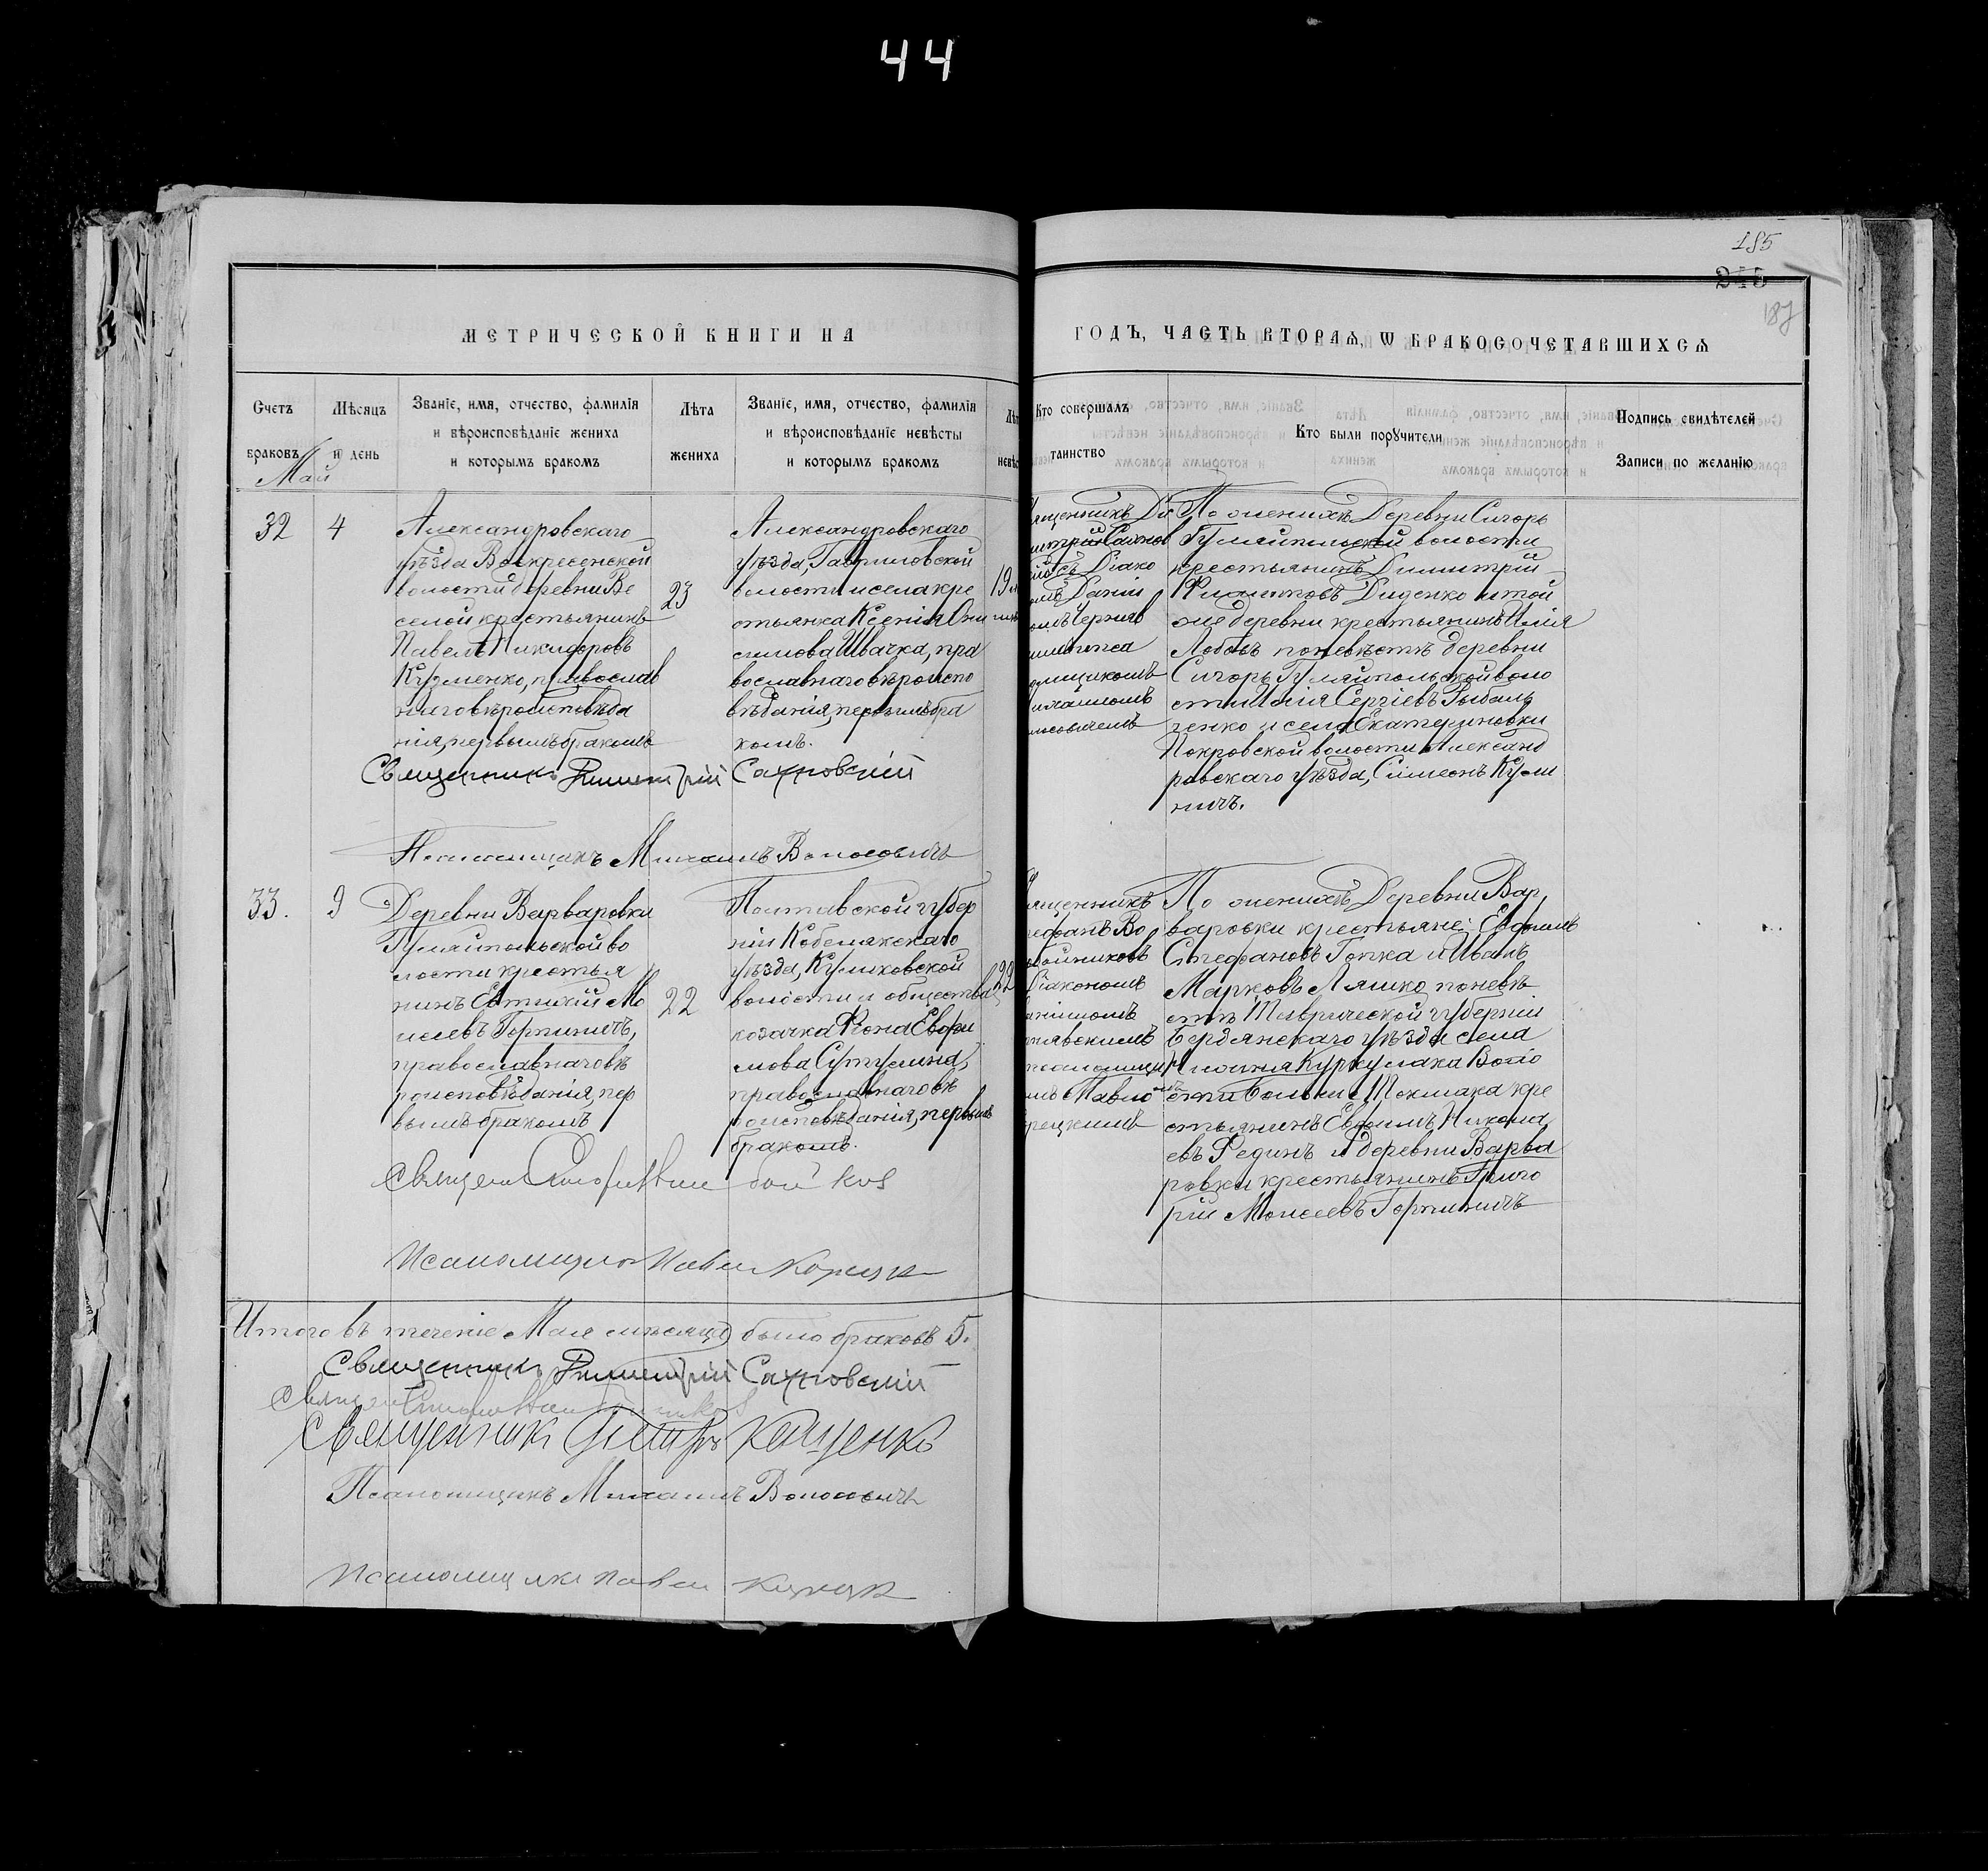 44
185
245
187
МЕТРИЧЕСКОЙ КНИГИ НА
ГОДЪ, ЧАСТЬ ВТОРАѦ, Ѡ БРАКОСОЧЕТАВШИХСѦ
Счетъ
браковъ
Мѣсяцъ
и день
Званіе, имя, отчество, фамилія
и вѣроисповѣданіе жениха
и которымъ бракомъ
Лѣта
жениха
Званіе, имя, отчество, фамилія
и вѣроисповѣданіе невѣсты
и которымъ бракомъ
Лѣт
невѣс
Кто совершалъ
таинство
Кто были поручители
Подпись свидѣтелей
Записи по желанію
Май
32
4
Александровскаго
уѣзда Воскресенской
волости деревни Ве
селой крестьянинъ
Павелъ Никифоровъ
Кузменко, православ
наго вѣроисповѣда
нія, первымъ бракомъ
23
Александровскаго
уѣзда, Гавриловской
волости и села кре
стьянка Ксенія Они
симова Швачка, пра
вославнаго вѣроиспо
вѣданія, первымъ бра
комъ.
19
ященникъ Ди
митрій Сахнов
скій съ Діако
номъ Даніи
ломъ Черняв
По женихѣ Деревни Сигорь
Гуляйпольской волости
крестьянинъ Димитрій
Филиповъ Диденко и той
же деревни крестьянинъ Илія
Лобъ по невѣстѣ деревни
Сигорь Гуляйпольской воло
сти Илія Сергіевъ Рыбаль
ченко и села Екатериновки
Покровской волости Александ
ровскаго уѣзда, Симеонъ Кузм
ничъ.
Священникъ Димитрій Сахновскій
Псаломщикъ Михаилъ Волосовичъ
33.
9
Деревни Варваровки
Гуляйпольской во
лости крестья
нинъ Евтихій Мо
исеевъ Горпиничъ,
православнаго вѣ
роисповѣданія, пер
вымъ бракомъ
22
Полтавской губер
ніи Кобелякскаго
уѣзда, Куликовской
волости и общества
козачка Ѳекла Евфи
мова Сутулина,
православнаго вѣ
роисповѣданія, первымъ
бракомъ.
22
ященникъ
тефанъ Во
бойниковъ
Діакономъ
аніиломъ
рнявскимъ
псаломщи
мъ Павло
рецкимъ
По женихѣ Деревни Вар
варовки крестьяне: Евфимъ
Стефановъ Гопка и Иванъ
Марковъ Ляшко по невѣ
стѣ Таврической губерніи
Бердянскаго уѣзда села
Куркулака Воло
сти Больше Токмака кре
стьянинъ Евфимъ Никола
евъ Рединъ и деревни Варва
ровки крестьянинъ Григо
рій Моисеевъ Горпиничъ
Псаломщикъ Павелъ Корецкій
Итого въ теченіе Мая мѣсяца было браковъ 5.
Священникъ Димитрій Сахновскій
Священникъ Петръ Кащенко
Псаломщикъ Михаилъ Волосовичъ
Псаломщикъ Павелъ Корецкій